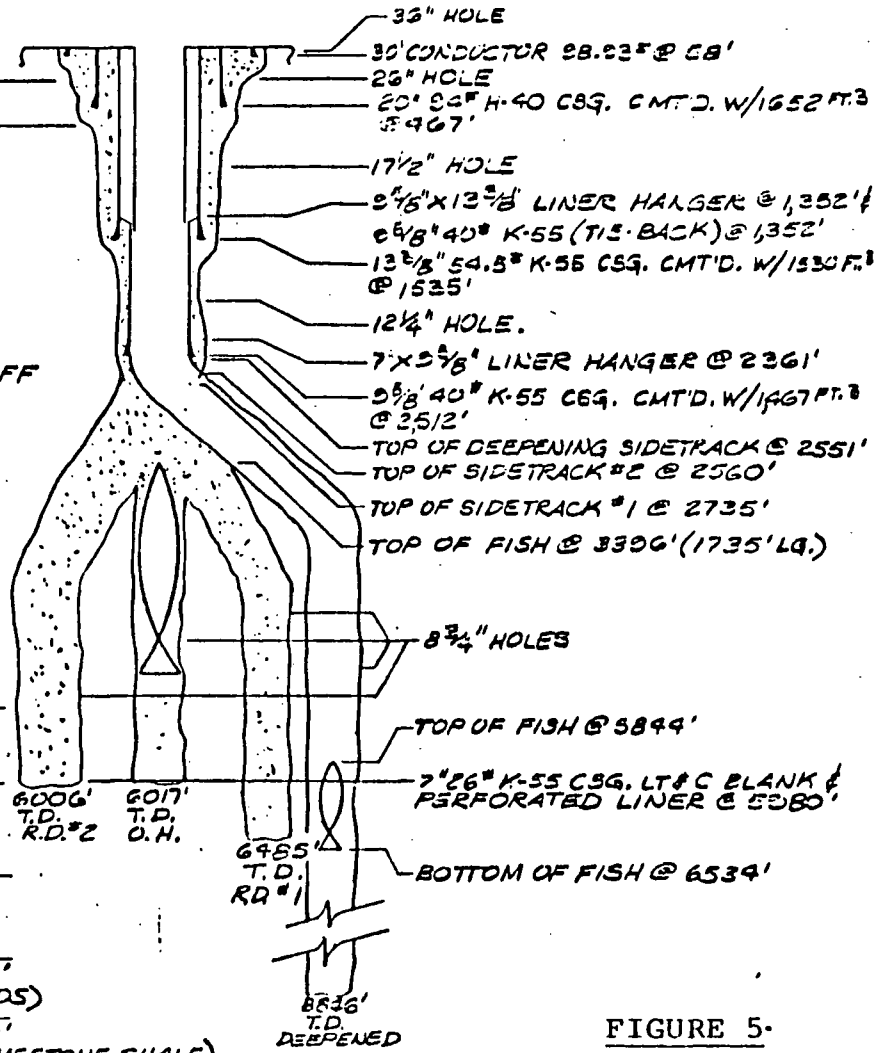 36" HOLE
30" CONDUCTOR @ 68'
26" HOLE
20" 94# H-40 CSG. CMT'D. W/1652 FT.3
@ 467'
17½" HOLE
9⅝" X 13⅜" LINER HANGER @ 1,352' &
40# K-55 (TIE-BACK) @ 1,352'
13⅜" 54.5# K-55 CSG. CMT'D. W/ FT.3
@ 1535'
12¼" HOLE.
7" X 9⅝" LINER HANGER @ 2361'
FF
9⅝" 40# K-55 CSG. CMT'D. W/1,467 FT.3
@ 2,512'
TOP OF DEEPENING SIDETRACK @ 2551'
TOP OF SIDETRACK #2 @ 2560'
TOP OF SIDETRACK #1 @ 2735'
TOP OF FISH @ 3396' (1735' LG.)
8¾" HOLES
TOP OF FISH @ 5844'
7" 26# K-55 CSG. LT&C BLANK &
PERFORATED LINER @
6006'
T.D.
R.D. #2
6017'
T.D.
O.H.
6485'
T.D.
RD #1
BOTTOM OF FISH @ 6534'
DS)
T.D.
DEEPENED
SHALE)
FIGURE 5.